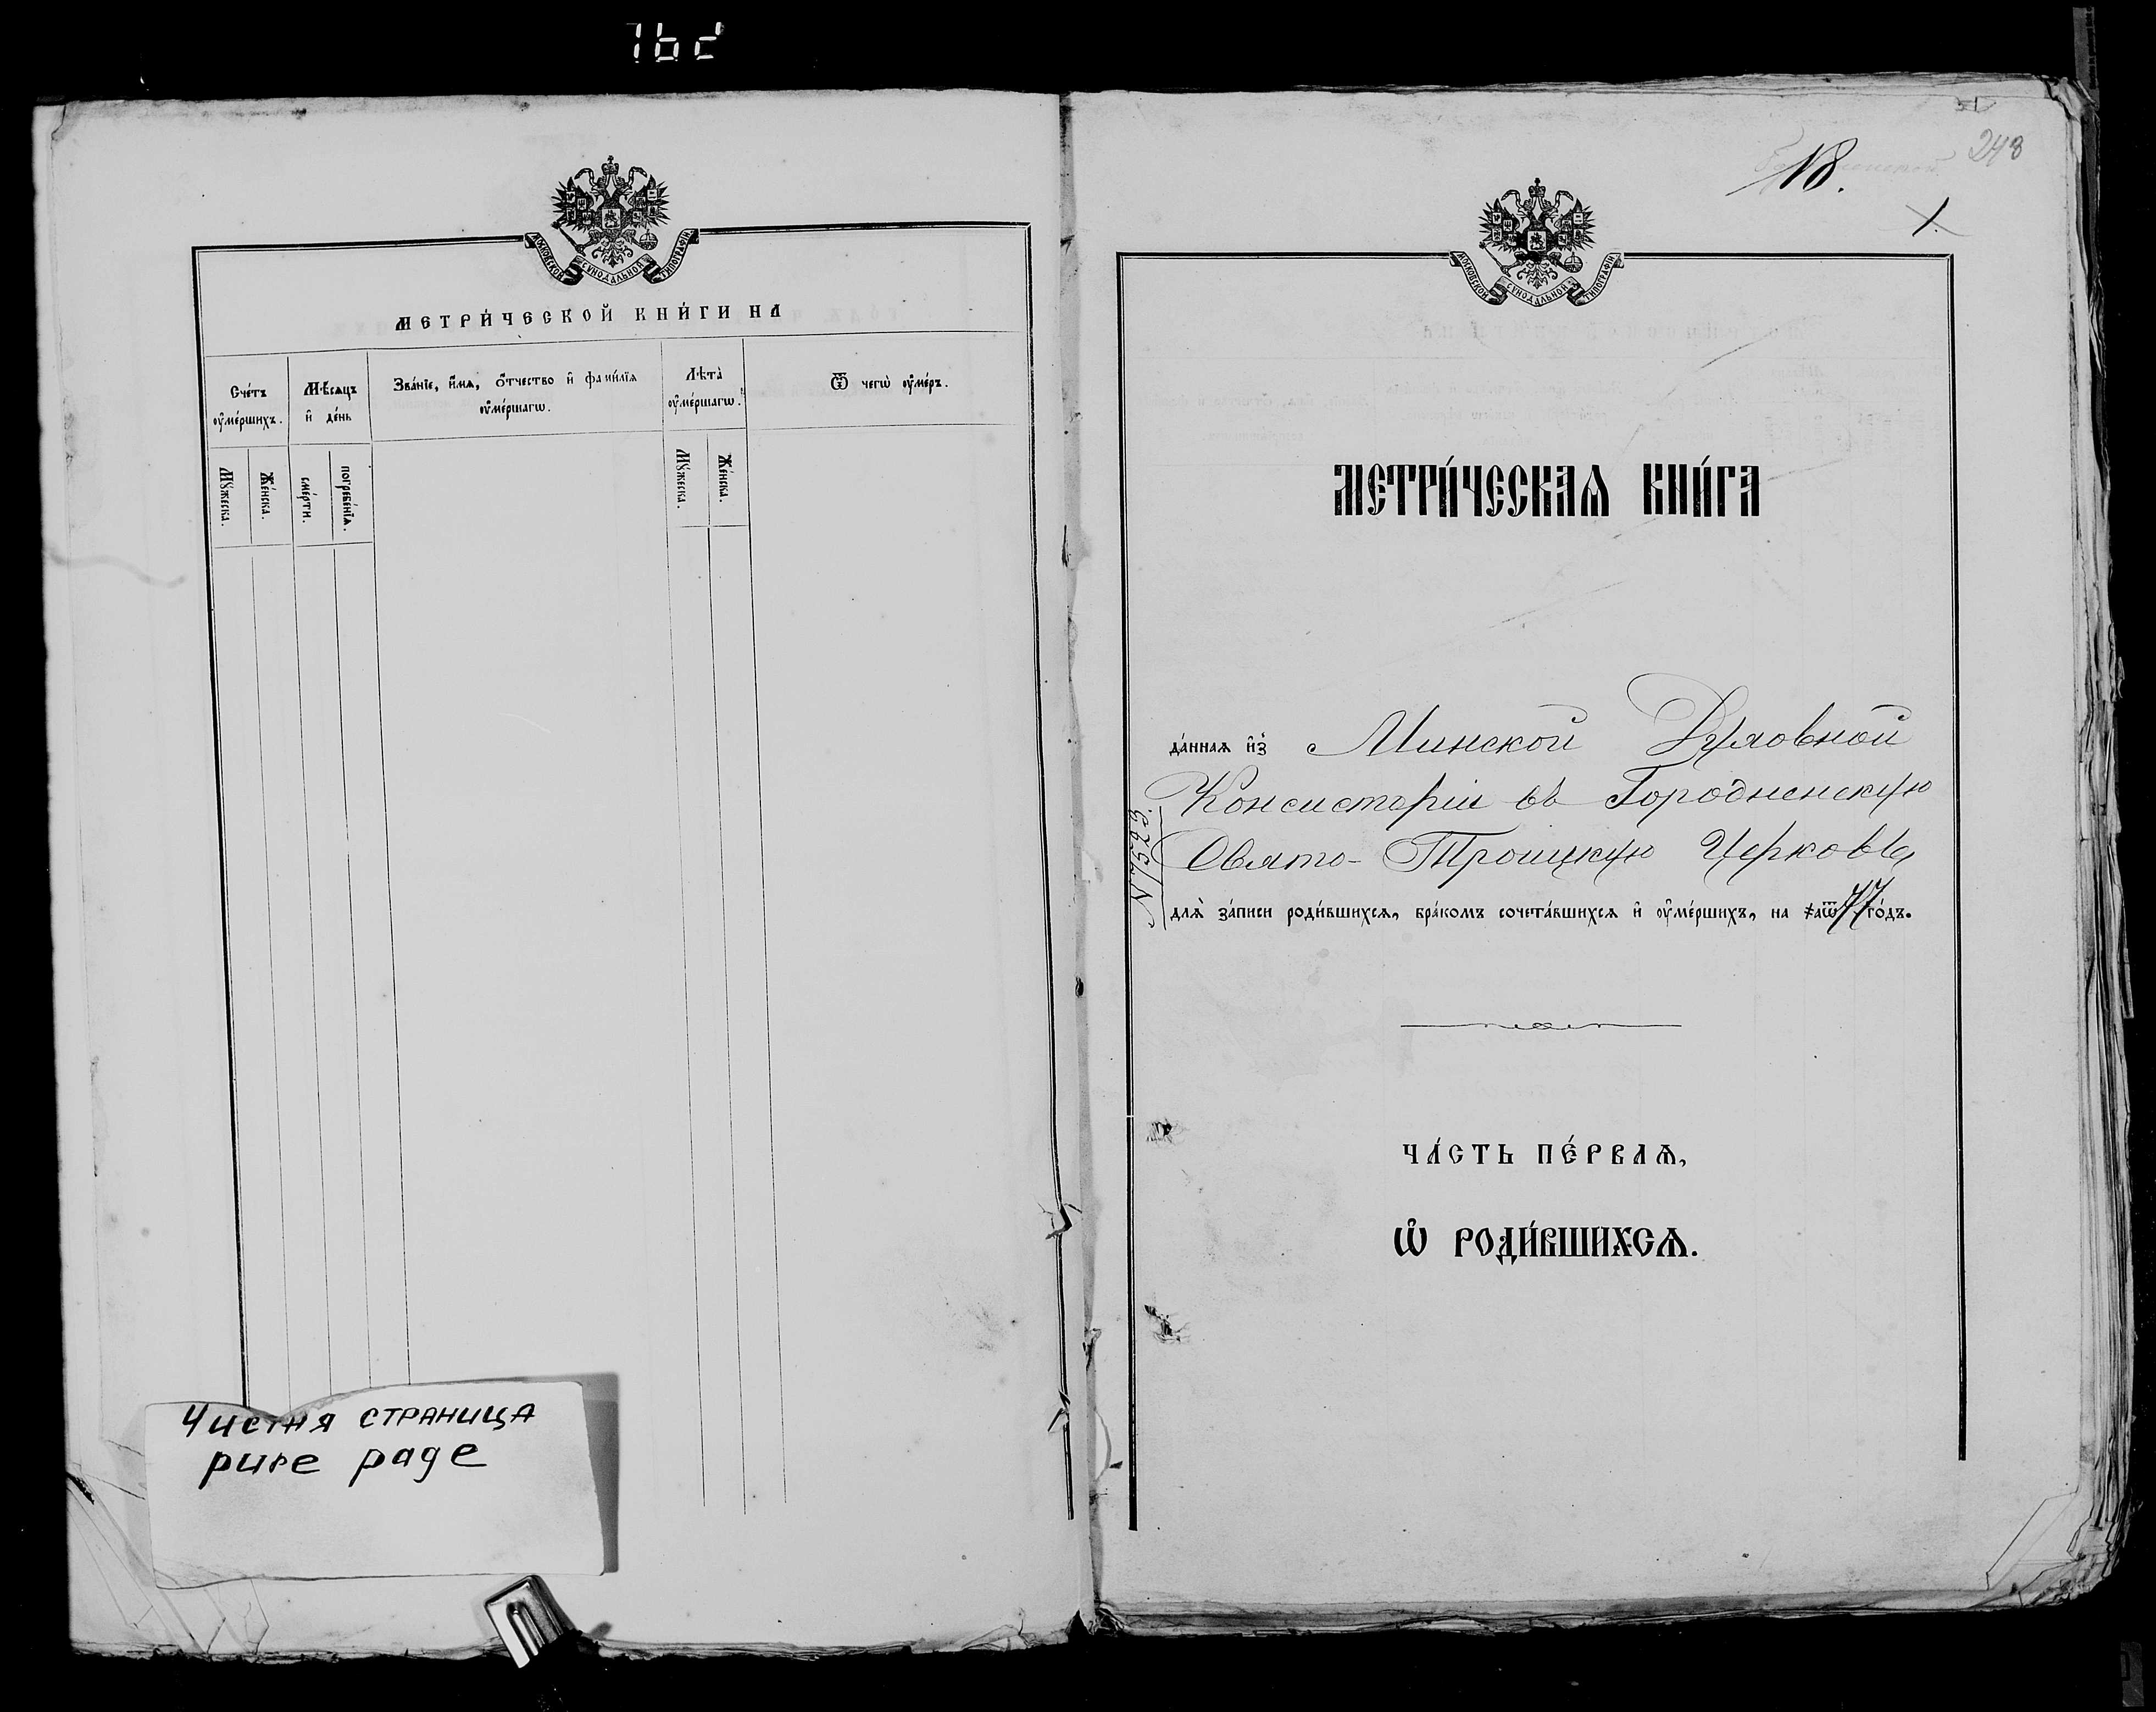 МОСКОВСКОЙ СѴНОДАЛЬНОЙ ТИПОГРАФІИ
МЕТРИ́ЧЕСКОЙ КНИ́ГИ НА
Сче́тъ ᲂу҆ме́ршихъ.
Мѣ́сяцъ и҆ де́нь
Зва́нїе, и҆́мя, ѻ҆́тчество и҆ фами́лїя ᲂу҆ме́ршагѡ.
Лѣ́та ᲂу҆ме́ршагѡ.
Ѿ чегѡ̀ ᲂу҆ме́ръ.
Мꙋ́жеска.
Же́нска.
сме́рти.
погребе́нїѧ.
Мꙋ́жеска.
Же́нска.
Чистая страница
pure page
243
18.
1.
МОСКОВСКОЙ СѴНОДАЛЬНОЙ ТИПОГРАФІИ
МЕТРИ́ЧЕСКАѦ КНИ́ГА
да́ннаѧ и҆з̾ Минской Духовной
Консисторіи въ Городненскую
Свято-Троицкую Церковь
N 7523.
длѧ̀ за́писи роди́вшихсѧ, бра́комъ сочета́вшихсѧ и҆ ᲂу҆ме́ршихъ, на ҂аѿ77 го́дъ.
ЧА́СТЬ ПЕ́РВАѦ,
Ѡ҆ РОДИ́ВШИХСѦ.